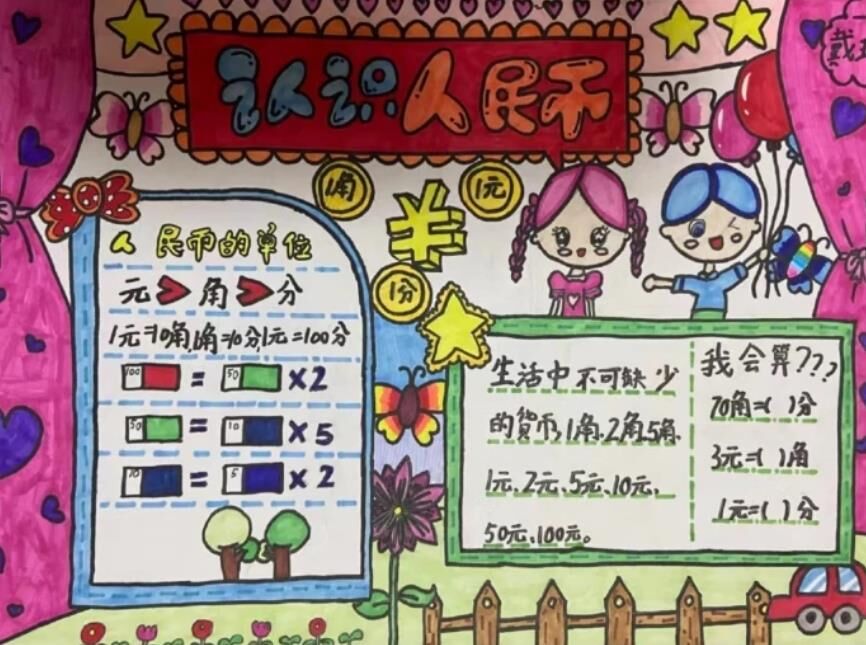 认识人民币
戴
1角
1元
¥
1分
人民币的单位
元>角>分
1元=10角,1角=10分,1元=100分
100 = 50 ×2
50 = 10 ×5
10 = 5 ×2
生活中不可缺少
的货币,1角、2角、5角、
1元、2元、5元、10元、
50元、100元。
我会算???
70角=( )分
3元=( )角
1元=( )分